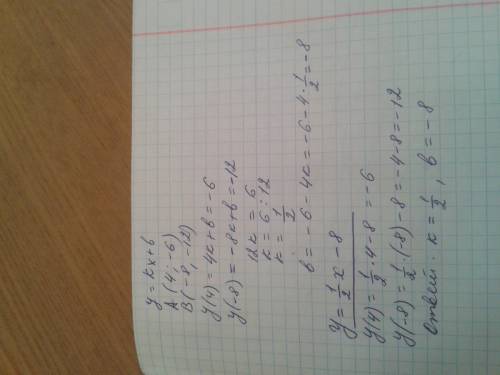 y = kx + b
A (4; -6)
B (-8; -12)
y(4) = 4k + b = -6
y(-8) = -8k + b = -12
12k = 6
k = 6 : 12
k = 1/2
b = -6 - 4k = -6 - 4 · 1/2 = -8
y = 1/2 x - 8
y(4) = 1/2 · 4 - 8 = -6
y(-8) = 1/2 · (-8) - 8 = -4 - 8 = -12
Ответ: k = 1/2, b = -8